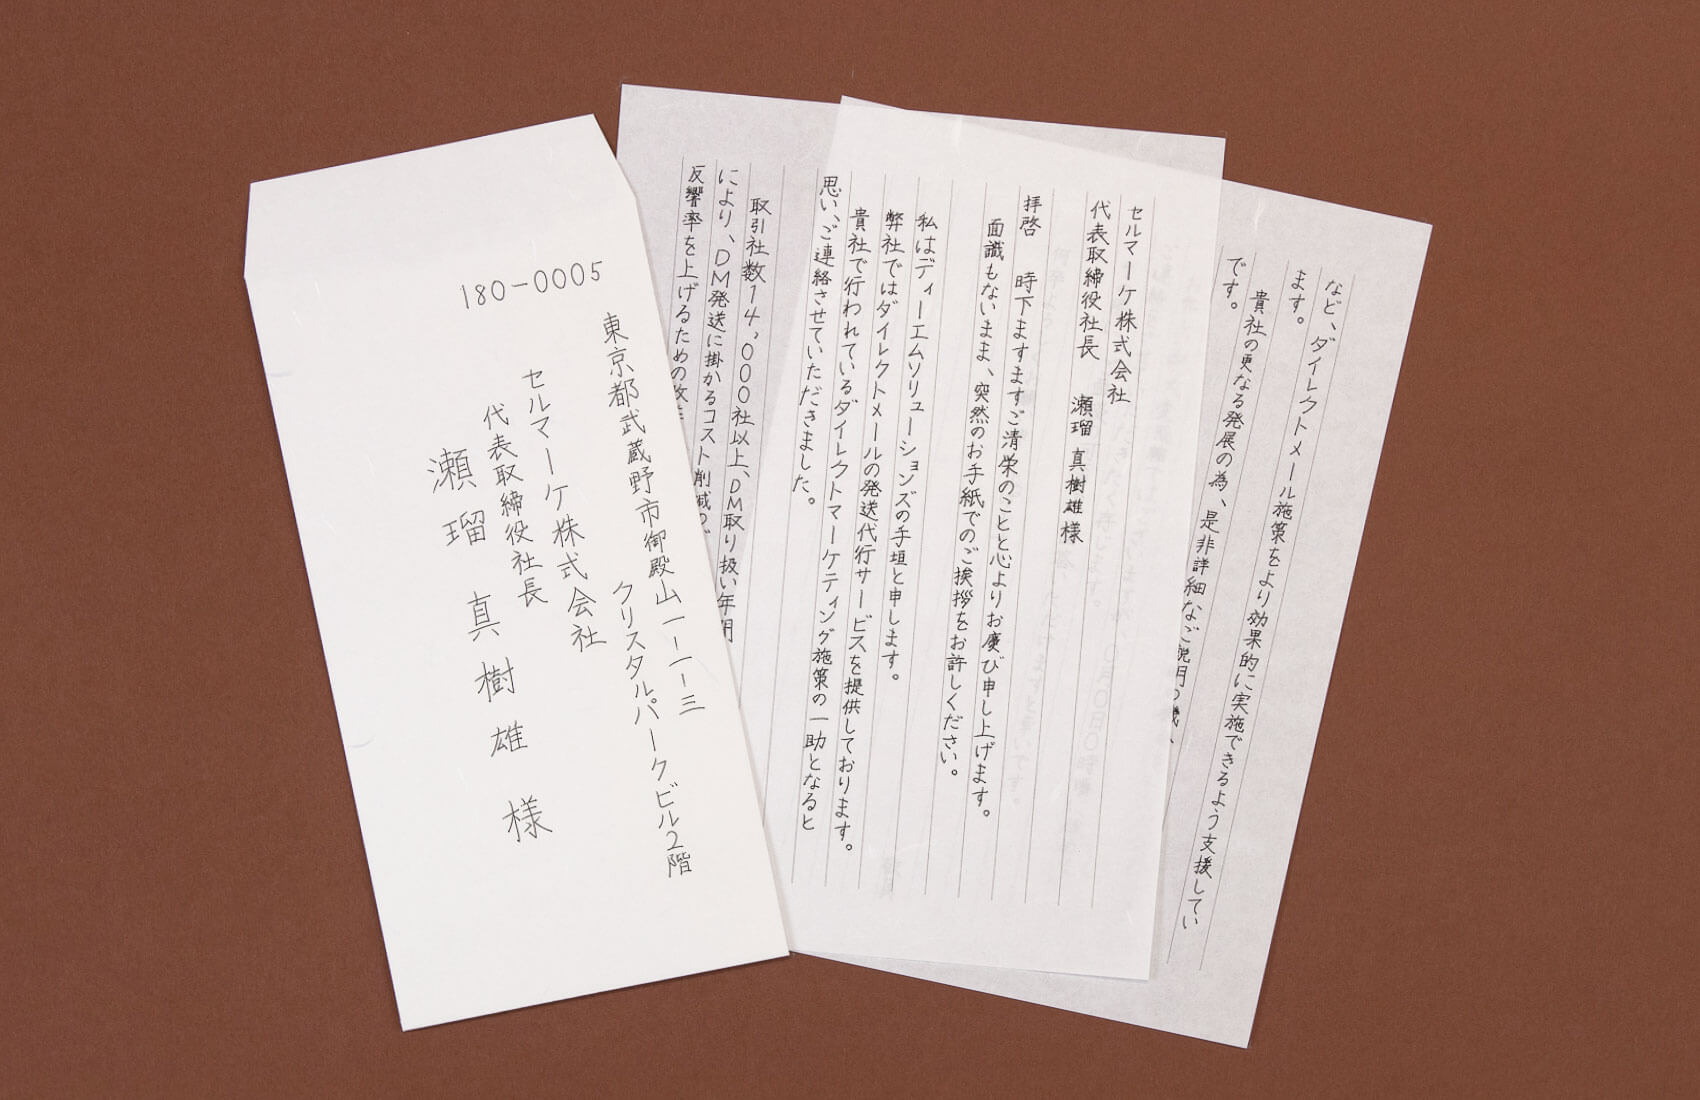 180-0005
東京都武蔵野市御殿山一-一-三
クリスタルパークビル2階
セルマーケ株式会社
代表取締役社長
瀬瑠 真樹雄 様
セルマーケ株式会社
代表取締役社長 瀬瑠 真樹雄 様
拝啓 時下ますますご清栄のことと心よりお慶び申し上げます。
面識もないまま、突然のお手紙でのご挨拶をお許しください。
私はディーエムソリューションズの手垣と申します。
弊社ではダイレクトメールの発送代行サービスを提供しております。
貴社で行われているダイレクトマーケティング施策の一助となると
思い、ご連絡させていただきました。
取引社数14,000社以上、DM取り扱い年間
により、DM発送に掛かるコスト削減
反響率を上げるための
など、ダイレクトメール施策をより効果的に実施できるよう支援してい
ます。
貴社の更なる発展の為、是非詳細なご説明の機
です。